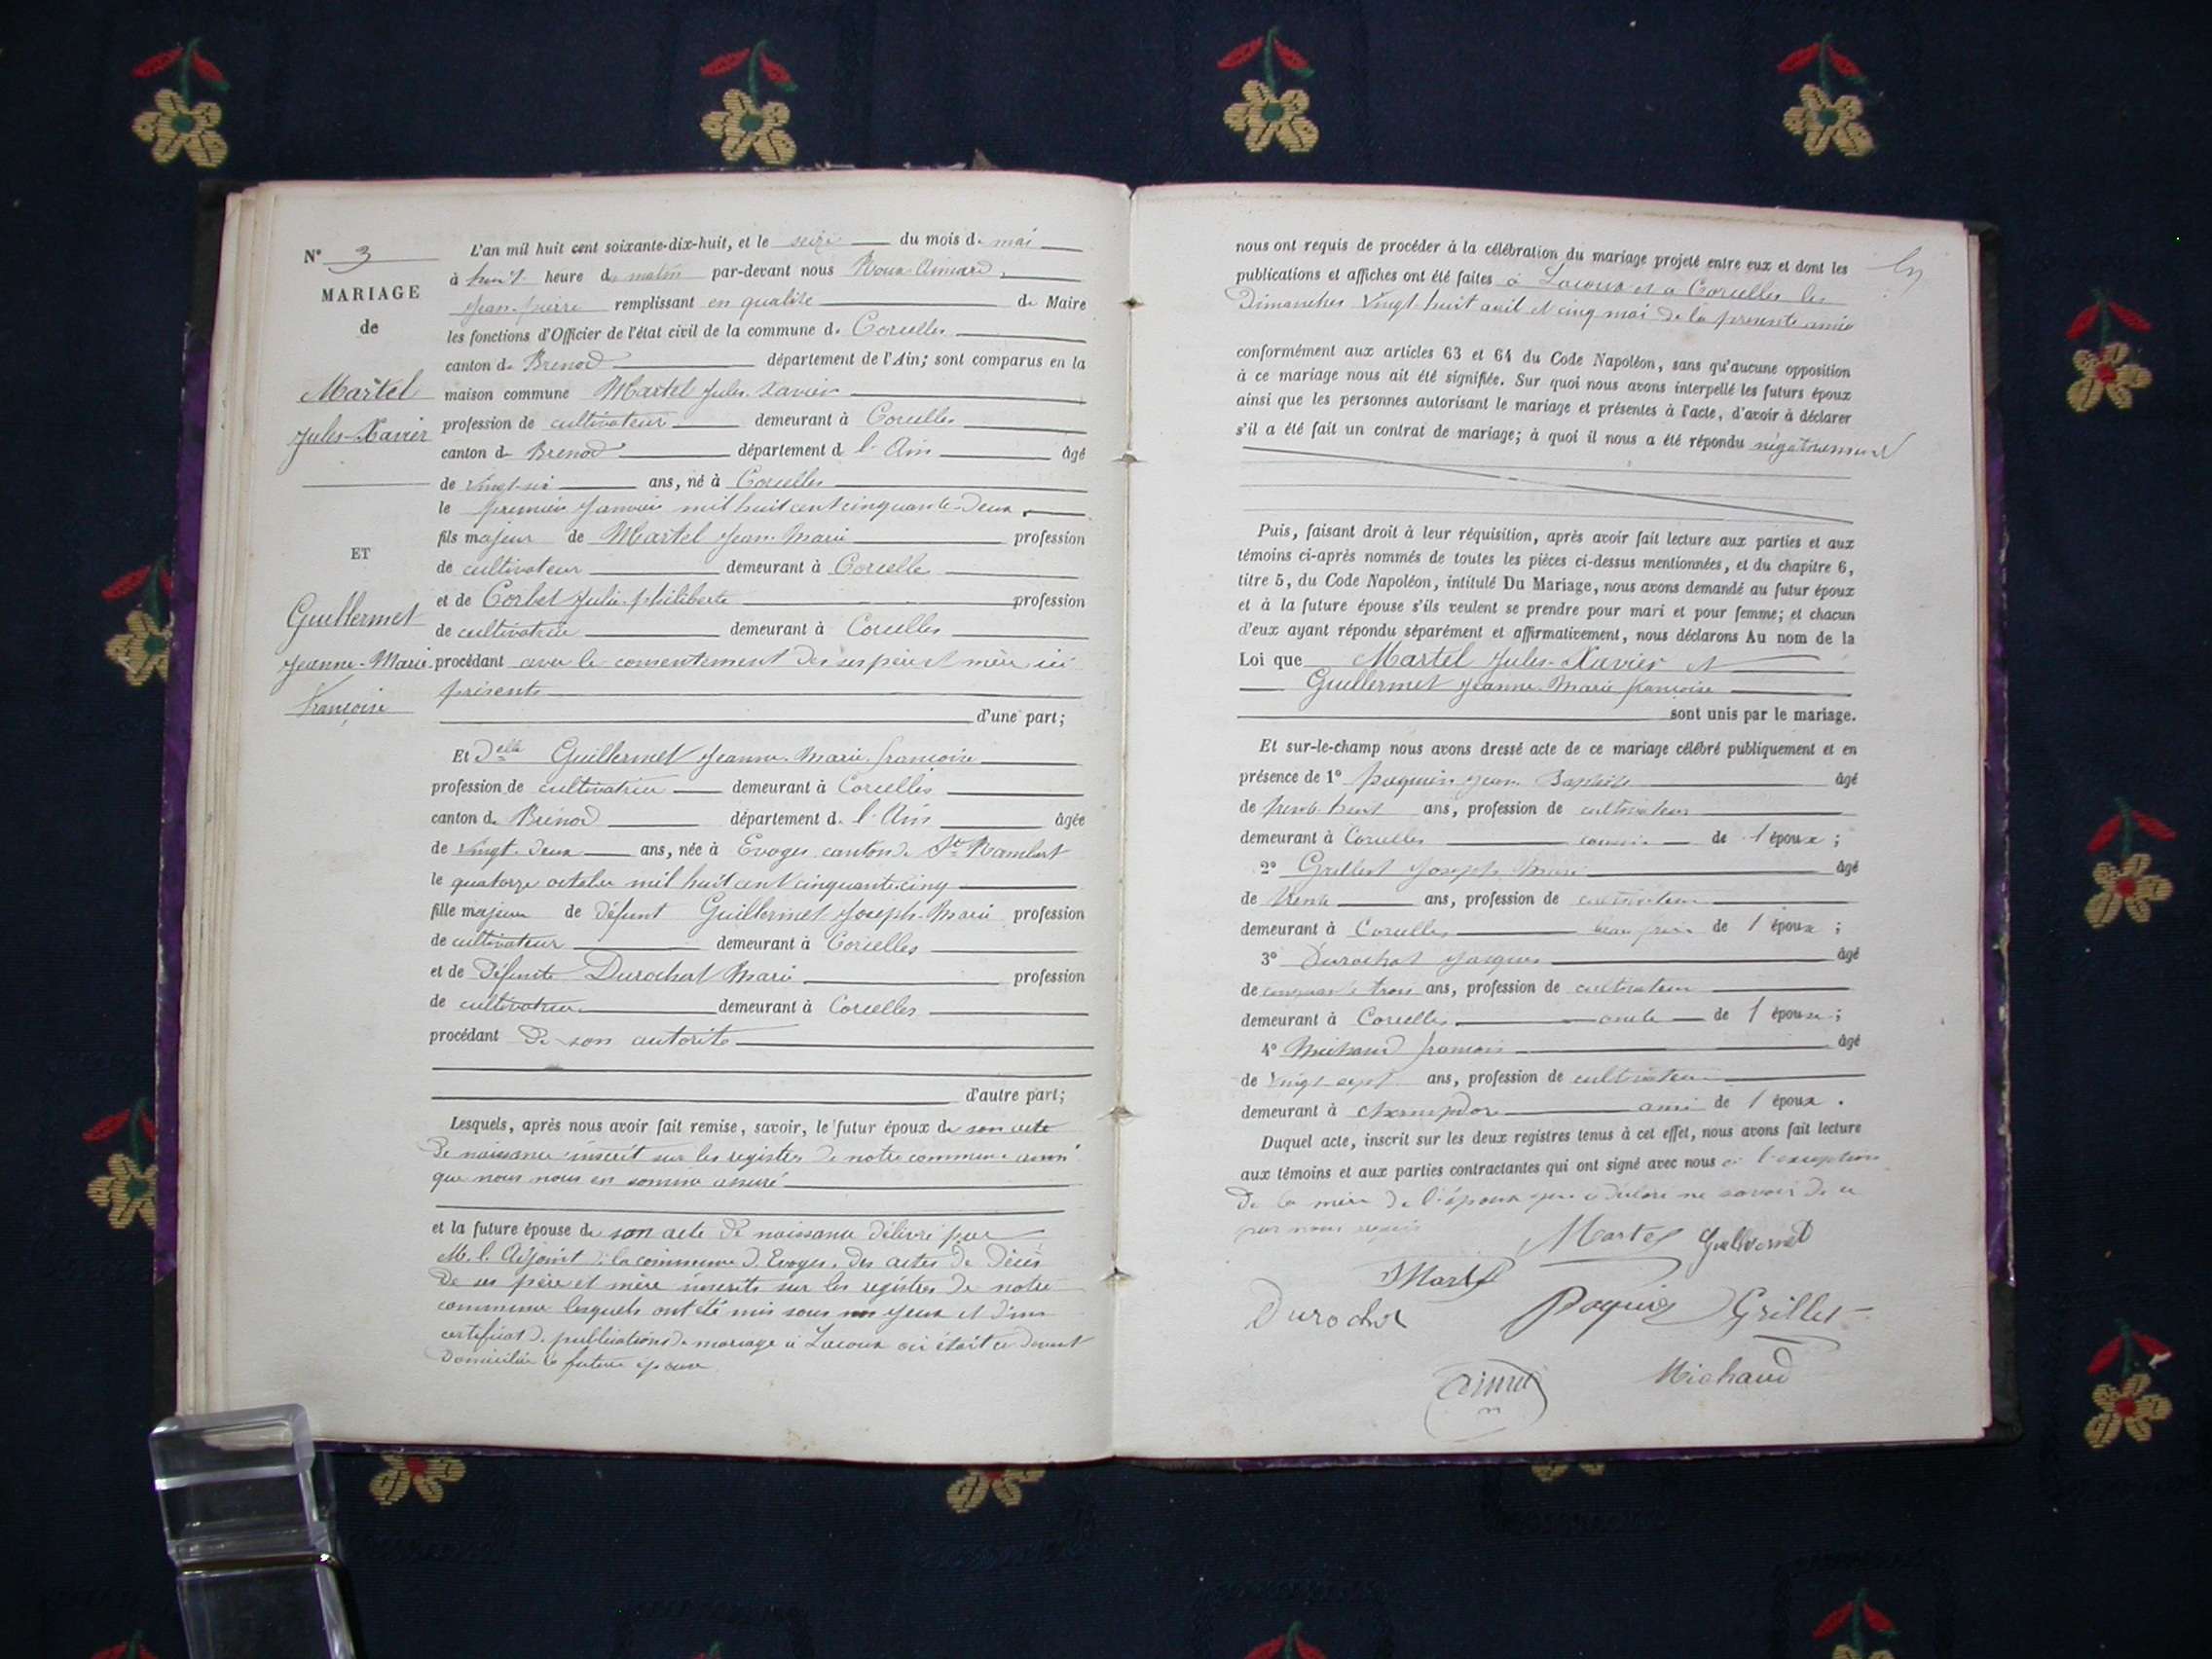 N° 3
MARIAGE
de
Martel
Jules-Xavier
ET
Guillermet
Jeanne-Marie
françoise
L'an mil huit cent soixante-dix-huit, et le seize du mois de mai
à huit heure du matin par-devant nous Roux-Aimard,
Jean-pierre remplissant en qualité de Maire
les fonctions d'Officier de l'état civil de la commune de Corcelles
canton de Brenod département de l'Ain; sont comparus en la
maison commune Martel Jules-Xavier
profession de cultivateur demeurant à Corcelles
canton de Brenod département de l'Ain âgé
de vingt-six ans, né à Corcelles
le premier Janvier mil huit cent cinquante-deux,
fils majeur de Martel Jean-Marie profession
de cultivateur demeurant à Corcelle
et de Corbet Julie-philiberte profession
de cultivatrice demeurant à Corcelles
procédant avec le consentement de ses père et mère ici
présents
d'une part;
Et Delle Guillermet Jeanne-Marie-françoise
profession de cultivatrice demeurant à Corcelles
canton de Brénod département de l'Ain âgée
de vingt-deux ans, née à Evoges canton de St Rambert
le quatorze octobre mil huit cent cinquante-cinq
fille majeure de défunt Guillermet Joseph-Marie profession
de cultivateur demeurant à Corcelles
et de défunte Durochat Marie profession
de cultivatrice demeurant à Corcelles
procédant de son autorité
d'autre part;
Lesquels, après nous avoir fait remise, savoir, le futur époux de son acte
de naissance inscrit sur les registres de notre commune ainsi
que nous nous en somme assuré
et la future épouse de son acte de naissance délivré par
M. l'Adjoint de la commune d'Evoges, des actes de décès
de ses père et mère inscrits sur les registres de notre
commune lesquels ont été mis sous nos yeux et d'un
certificat de publications de mariage à Lacoux où était ci devant
domiciliée la future épouse
nous ont requis de procéder à la célébration du mariage projeté entre eux et dont les
publications et affiches ont été faites à Lacoux et à Corcelles les
Dimanches vingt huit avril et cinq mai de la présente année
conformément aux articles 63 et 64 du Code Napoléon, sans qu'aucune opposition
à ce mariage nous ait été signifiée. Sur quoi nous avons interpellé les futurs époux
ainsi que les personnes autorisant le mariage et présentes à l'acte, d'avoir à déclarer
s'il a été fait un contrat de mariage; à quoi il nous a été répondu négativement
Puis, faisant droit à leur réquisition, après avoir fait lecture aux parties et aux
témoins ci-après nommés de toutes les pièces ci-dessus mentionnées, et du chapitre 6,
titre 5, du Code Napoléon, intitulé Du Mariage, nous avons demandé au futur époux
et à la future épouse s'ils veulent se prendre pour mari et pour femme; et chacun
d'eux ayant répondu séparément et affirmativement, nous déclarons Au nom de la
Loi que Martel Jules-Xavier et
Guillermet Jeanne-Marie françoise
sont unis par le mariage.
Et sur-le-champ nous avons dressé acte de ce mariage célébré publiquement et en
présence de 1° paquin Jean-Baptiste âgé
de trente-huit ans, profession de cultivateur
demeurant à Corcelles cousin de l'époux;
2° Grillet Joseph Marie âgé
de trente ans, profession de cultivateur
demeurant à Corcelles beau frère de l'époux;
3° Durochat Jacques âgé
de cinquante trois ans, profession de cultivateur
demeurant à Corcelles oncle de l'épouse;
4° Michaud françois âgé
de vingt sept ans, profession de cultivateur
demeurant à champdor ami de l'époux.
Duquel acte, inscrit sur les deux registres tenus à cet effet, nous avons fait lecture
aux témoins et aux parties contractantes qui ont signé avec nous à l'exception
de la mère de l'époux qui a déclaré ne savoir de ce
par nous requis
Martel Guillermet
Martel
Durochat Paquin Grillet
Michaud